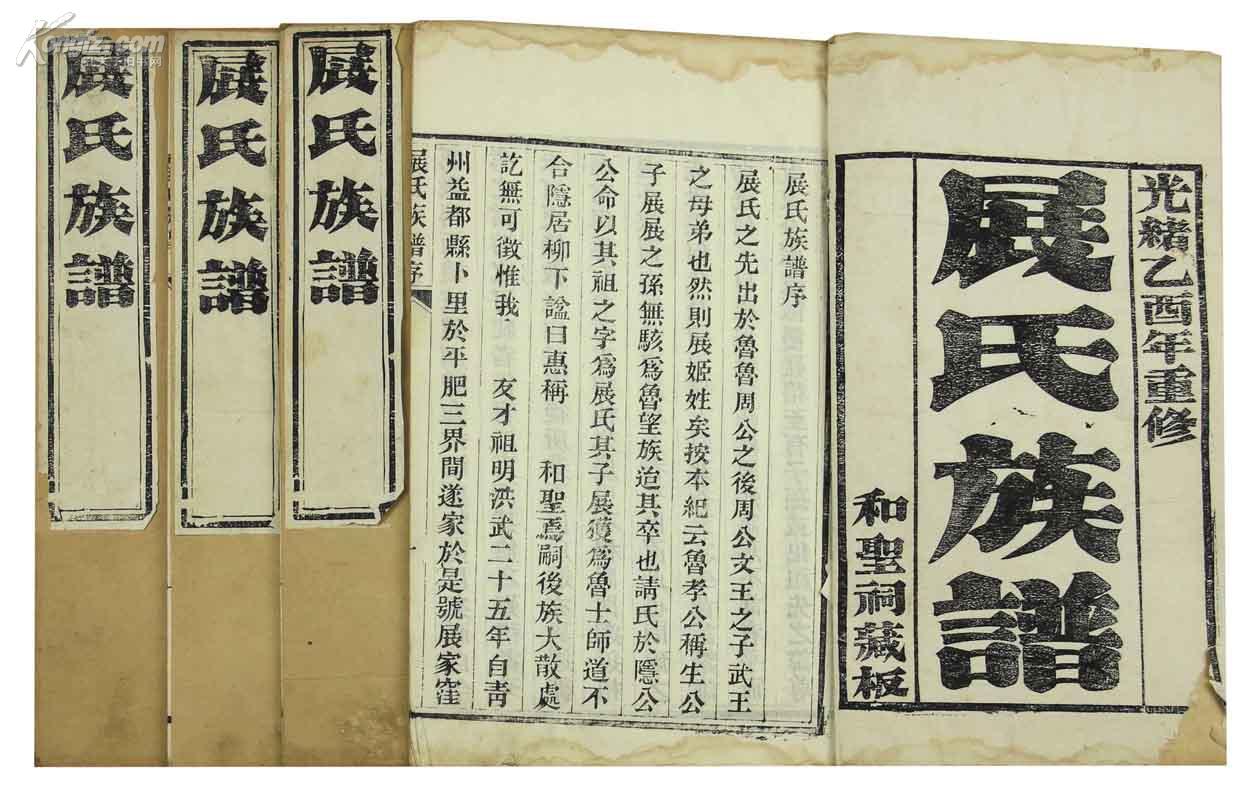 光緒乙酉年重修
展氏族譜
和聖祠藏板
展氏族譜序
展氏之先出於魯魯周公之後周公文王之子武王
之母弟也然則展姬姓矣按本紀云魯孝公稱生公
子展展之孫無駭爲魯望族迨其卒也請氏於隱公
公命以其祖之字爲展氏其子展獲爲魯士師道不
合隱居柳下諡曰惠稱 和聖焉嗣後族大散處
訖無可徵惟我 友才祖明洪武二十五年自靑
州益都縣卜里於平肥三界間遂家於是號展家窪
展氏族譜序
展氏族譜
展氏族譜
展氏族譜
Kongfz.com